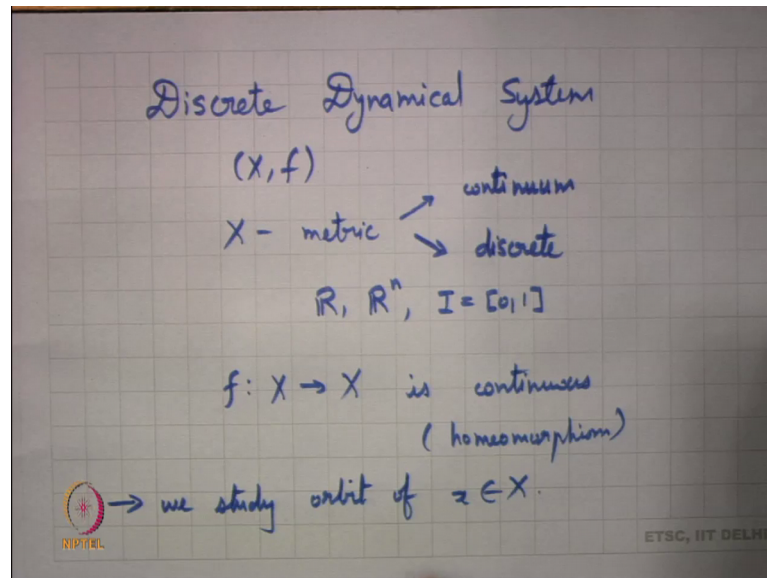 Discrete Dynamical System
(X, f)
X - metric ↗ continuum
↘ discrete
ℝ, ℝⁿ, I = [0,1]
f: X → X is continuous
(homeomorphism)
→ we study orbit of x ∈ X.
NPTEL
ETSC, IIT DELHI